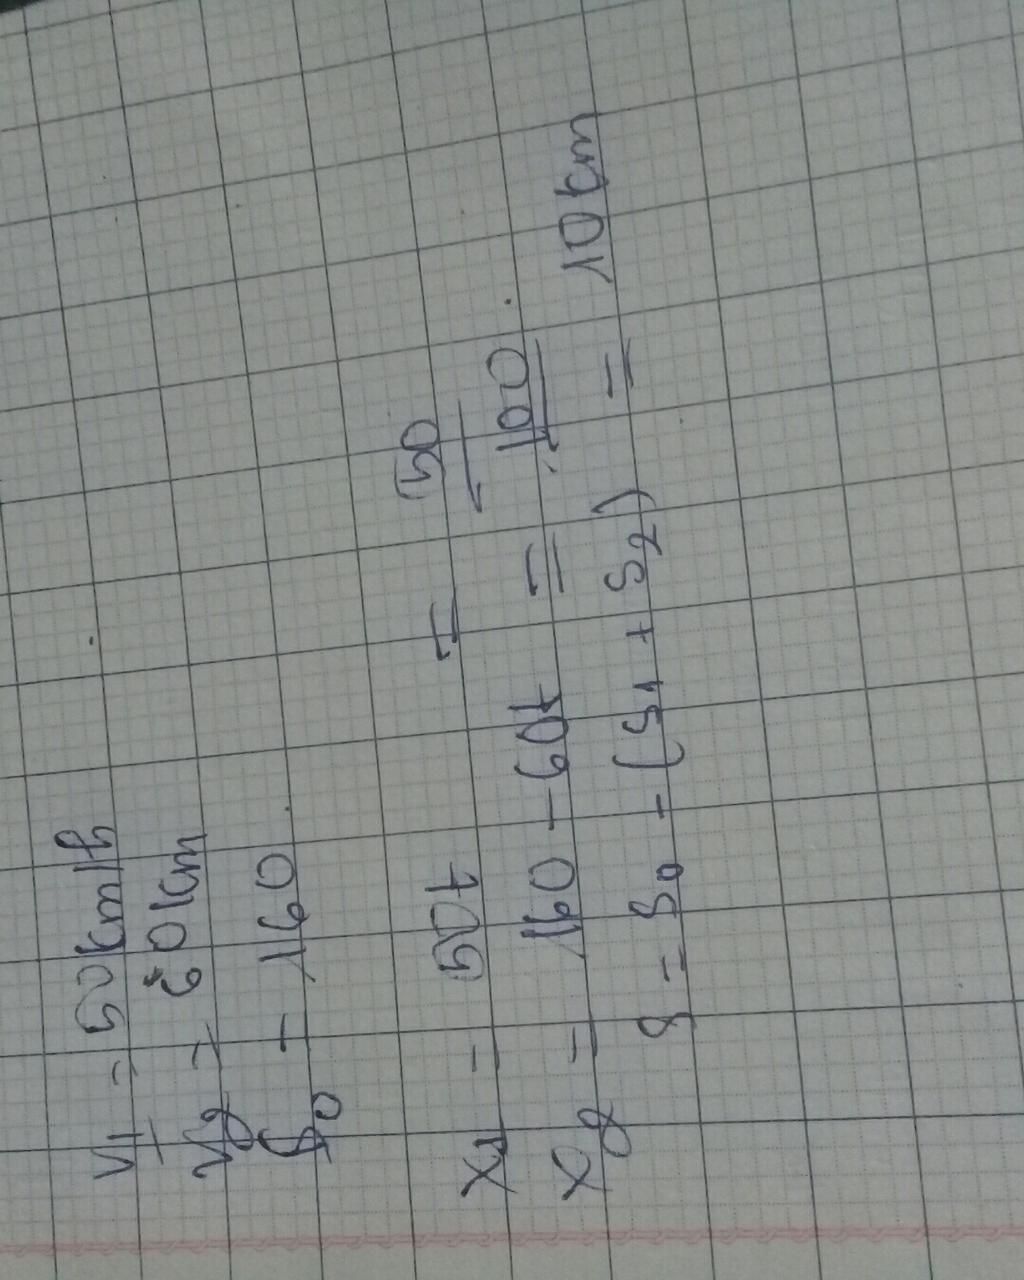 V1 = 50km/h
V2 = 60km
S0 - 160
x1 = 50t = 50
x2 = 160 - 60t = 100
S = S0 - (S1 + S2) = 10km